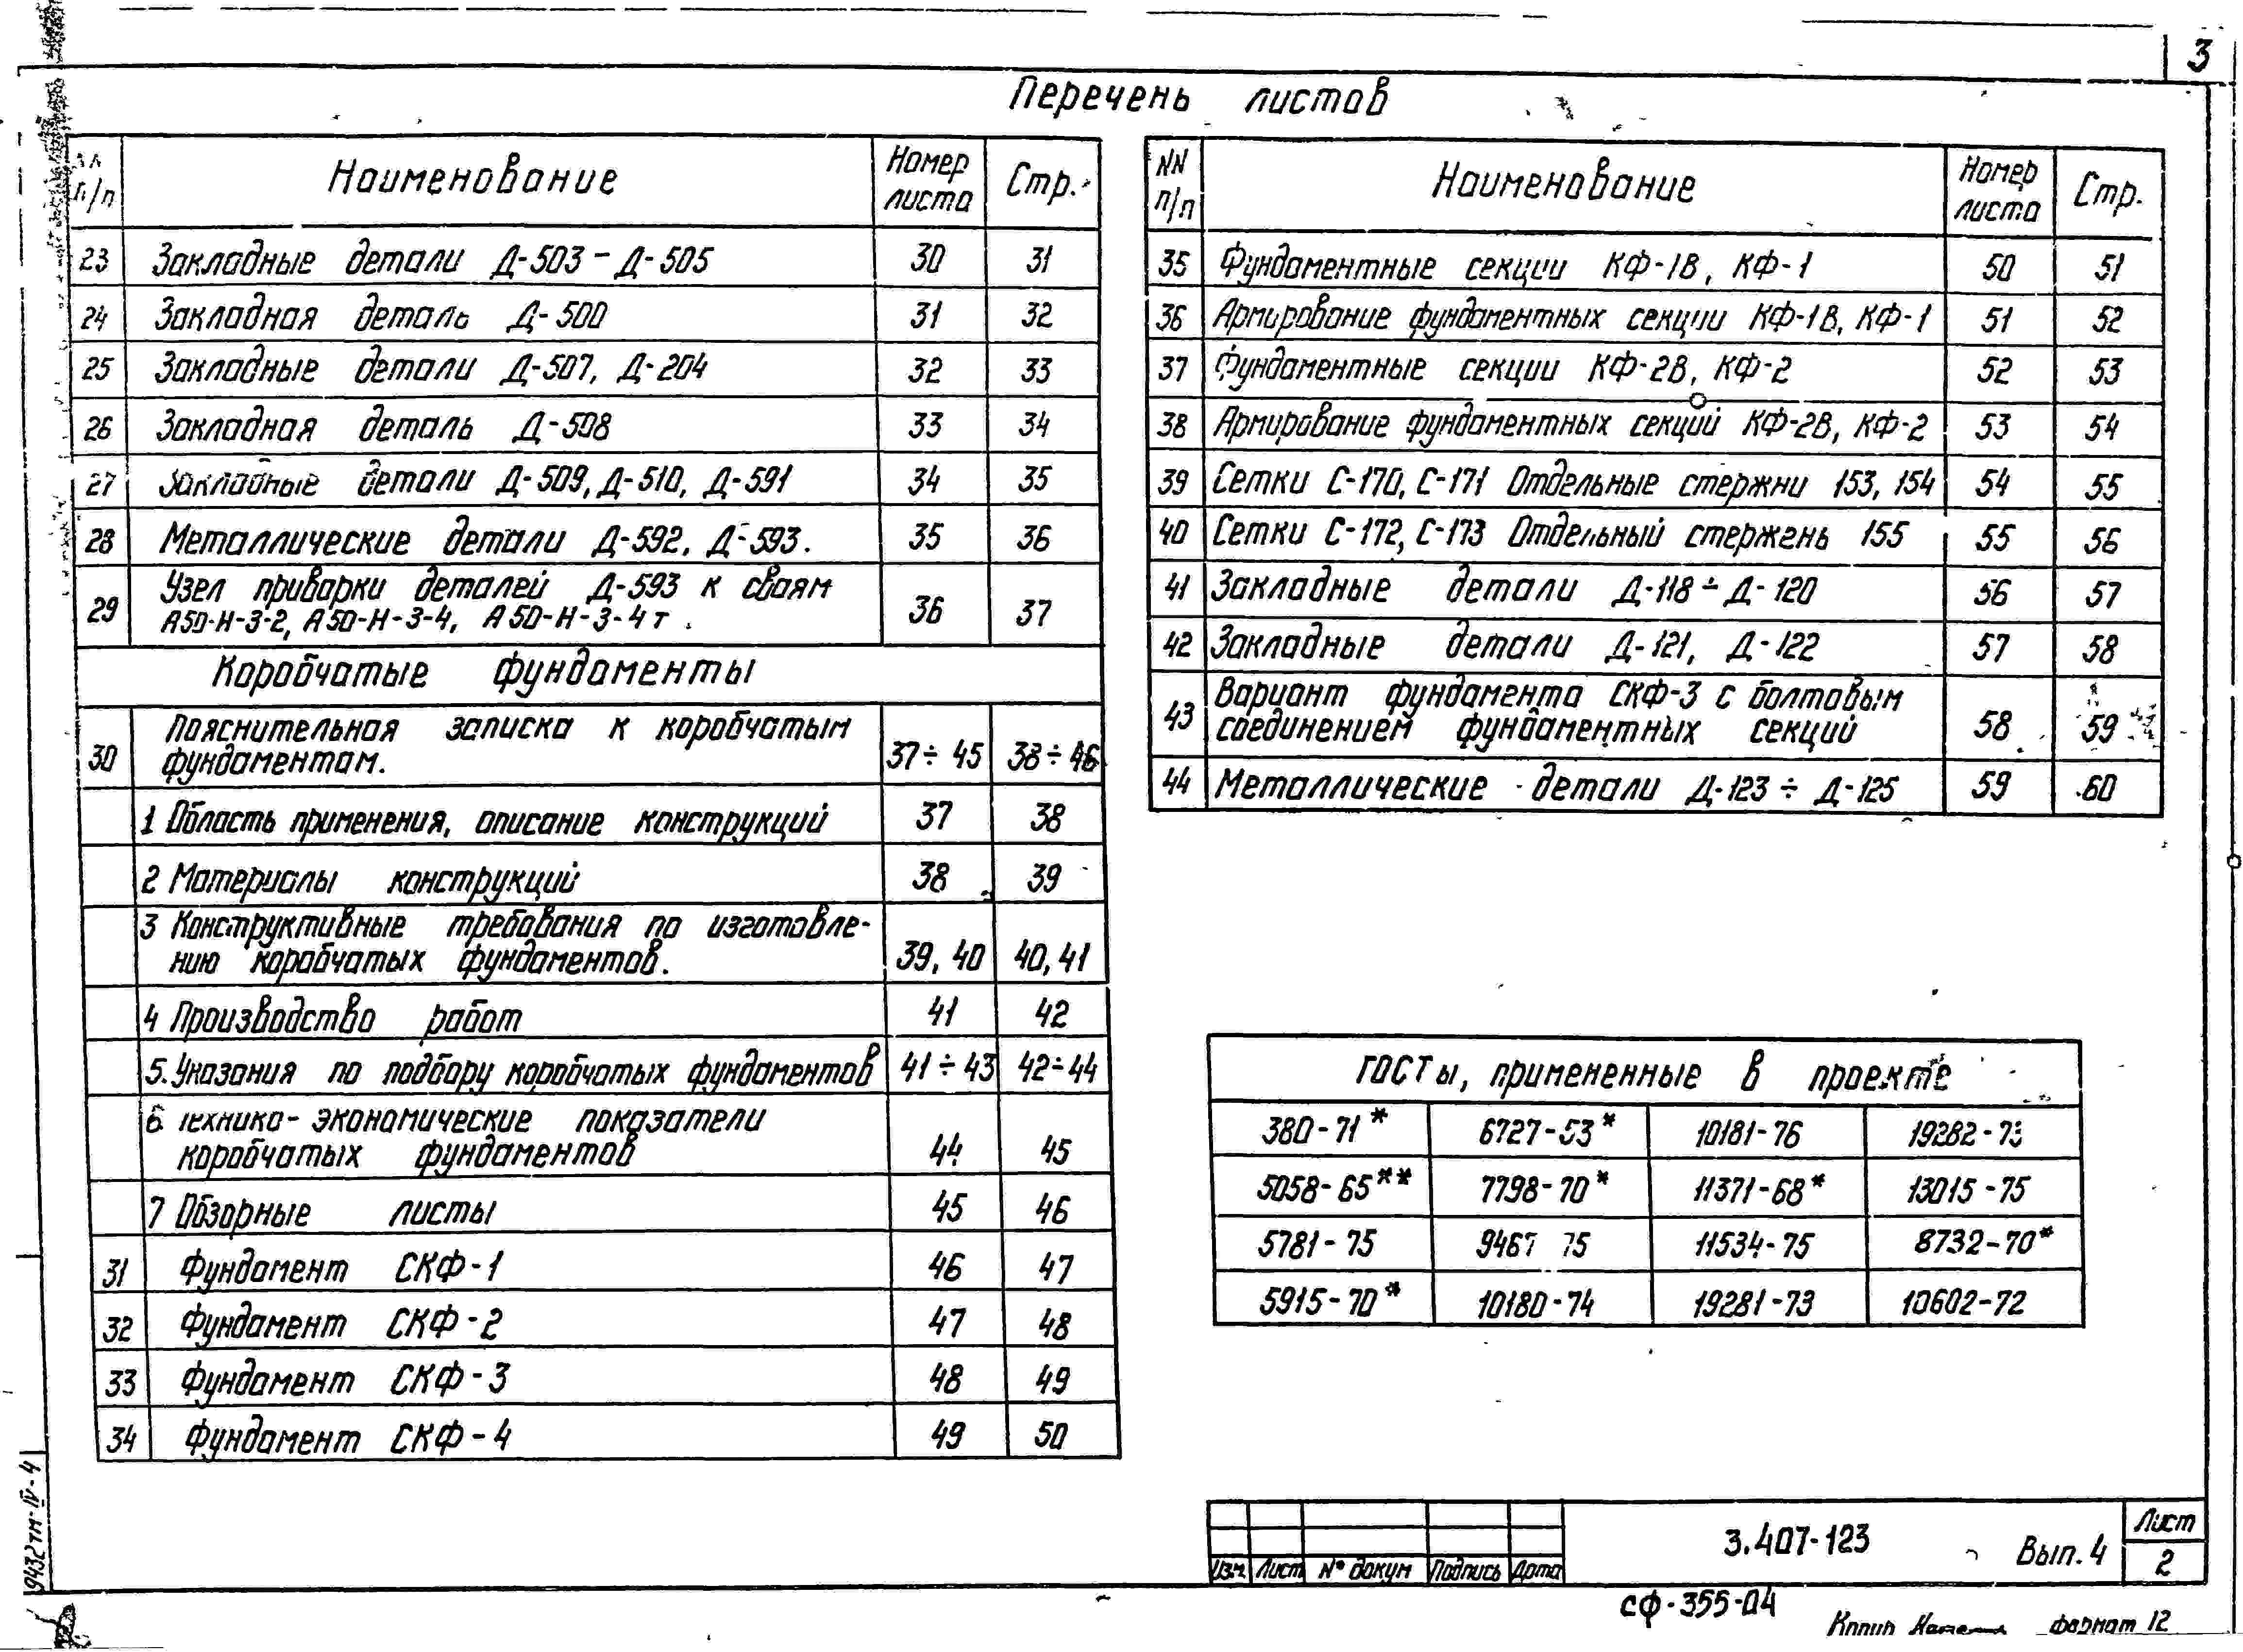 3
Перечень листов
п/п Наименование Номер листа Стр.
23 Закладные детали Д-503 - Д-505 30 31
24 Закладная деталь Д-500 31 32
25 Закладные детали Д-507, Д-204 32 33
26 Закладная деталь Д-508 33 34
27 Закладные детали Д-509, Д-510, Д-591 34 35
28 Металлические детали Д-592, Д-593. 35 36
29 Узел приварки деталей Д-593 к сваям
А50-Н-3-2, А50-Н-3-4, А50-Н-3-4т. 36 37
Коробчатые фундаменты
30 Пояснительная записка к коробчатым
фундаментам. 37÷45 38÷46
1 Область применения, описание конструкций 37 38
2 Материалы конструкций 38 39
3 Конструктивные требования по изготовле-
нию коробчатых фундаментов. 39, 40 40, 41
4 Производство работ 41 42
5. Указания по подбору коробчатых фундаментов 41÷43 42÷44
6 Технико-экономические показатели
коробчатых фундаментов 44 45
7 Обзорные листы 45 46
31 Фундамент СКФ-1 46 47
32 Фундамент СКФ-2 47 48
33 Фундамент СКФ-3 48 49
34 Фундамент СКФ-4 49 50
NN п/п Наименование Номер листа Стр.
35 Фундаментные секции КФ-1В, КФ-1 50 51
36 Армирование фундаментных секции КФ-1В, КФ-1 51 52
37 Фундаментные секции КФ-2В, КФ-2 52 53
38 Армирование фундаментных секций КФ-2В, КФ-2 53 54
39 Сетки С-170, С-171 Отдельные стержни 153, 154 54 55
40 Сетки С-172, С-173 Отдельный стержень 155 55 56
41 Закладные детали Д-118÷Д-120 56 57
42 Закладные детали Д-121, Д-122 57 58
43 Вариант фундамента СКФ-3 с болтовым
соединением фундаментных секций 58 59
44 Металлические детали Д-123÷Д-125 59 60
ГОСТы, примененные в проекте
380-71* 6727-53* 10181-76 19282-73
5058-65** 7798-70* 11371-68* 13015-75
5781-75 9467 75 11534-75 8732-70*
5915-70* 10180-74 19281-73 10602-72
Изм. Лист № докум Подпись Дата
3.407-123 Вып. 4
Лист
2
СФ-355-04
формат 12
9432тм-IV-4